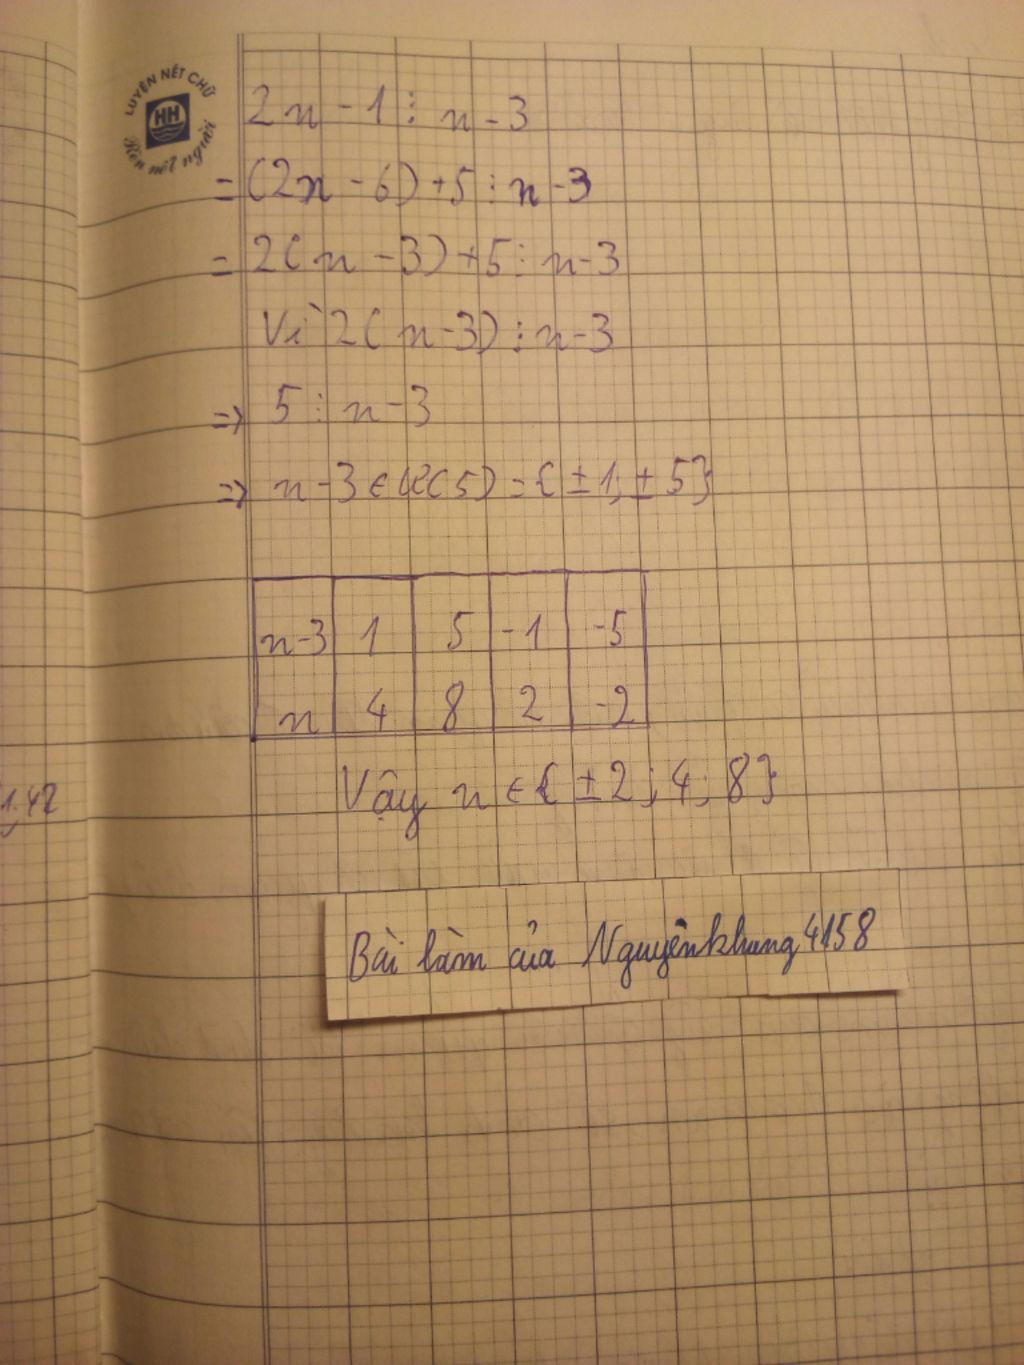 LUYỆN NÉT CHỮ
HH
Rèn nết người
2n - 1 ⋮ n - 3
= (2n - 6) + 5 ⋮ n - 3
= 2(n - 3) + 5 ⋮ n - 3
Vì 2(n - 3) ⋮ n - 3
=> 5 ⋮ n - 3
=> n - 3 ∈ Ư(5) = {±1; ±5}
n-3 1 5 -1 -5
n 4 8 2 -2
Vậy n ∈ {±2; 4; 8}
1,42
Bài làm của Nguyênkhung4158